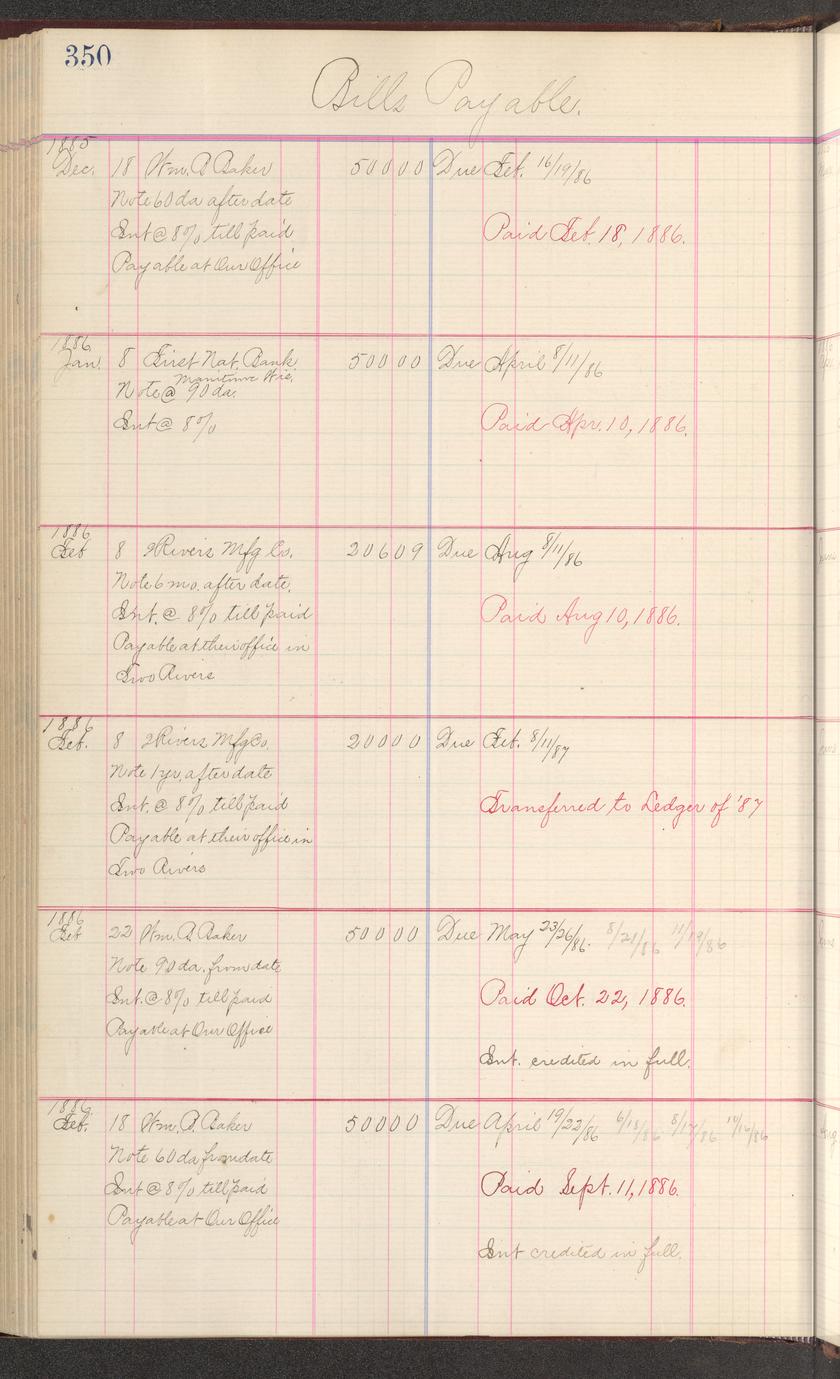 350
Bills Payable.
1885
Dec. 18 Wm. B. Baker 500 00 Due Feb. 16/19/86
Note 60 da after date
Int @ 8% till paid Paid Feb. 18, 1886.
Payable at Our Office
1886
Jan. 8 First Nat. Bank 500 00 Due April 8/11/86
Manitowoc Wis.
Note @ 90 da.
Int @ 8% Paid Apr. 10, 1886.
1886
Feb 8 2Rivers Mfg Co. 206 09 Due Aug 8/11/86
Note 6 mo. after date.
Int. @ 8% till paid Paid Aug 10, 1886.
Payable at their office in
Two Rivers
1886
Feb. 8 2Rivers Mfg Co. 200 00 Due Feb. 8/11/87
Note 1 yr. after date
Int. @ 8% till paid Transferred to Ledger of '87
Payable at their office in
Two Rivers
1886
Feb 22 Wm. B. Baker 500 00 Due May 23/26/86. 8/21/86 11/19/86
Note 90 da. from date
Int. @ 8% till paid Paid Oct. 22, 1886.
Payable at Our Office
Int. credited in full.
1886
Feb. 18 Wm. B. Baker 500 00 Due April 19/22/86 6/18/86 8/17/86 10/16/86
Note 60 da from date
Int @ 8% till paid Paid Sept. 11, 1886.
Payable at Our Office
Int credited in full.